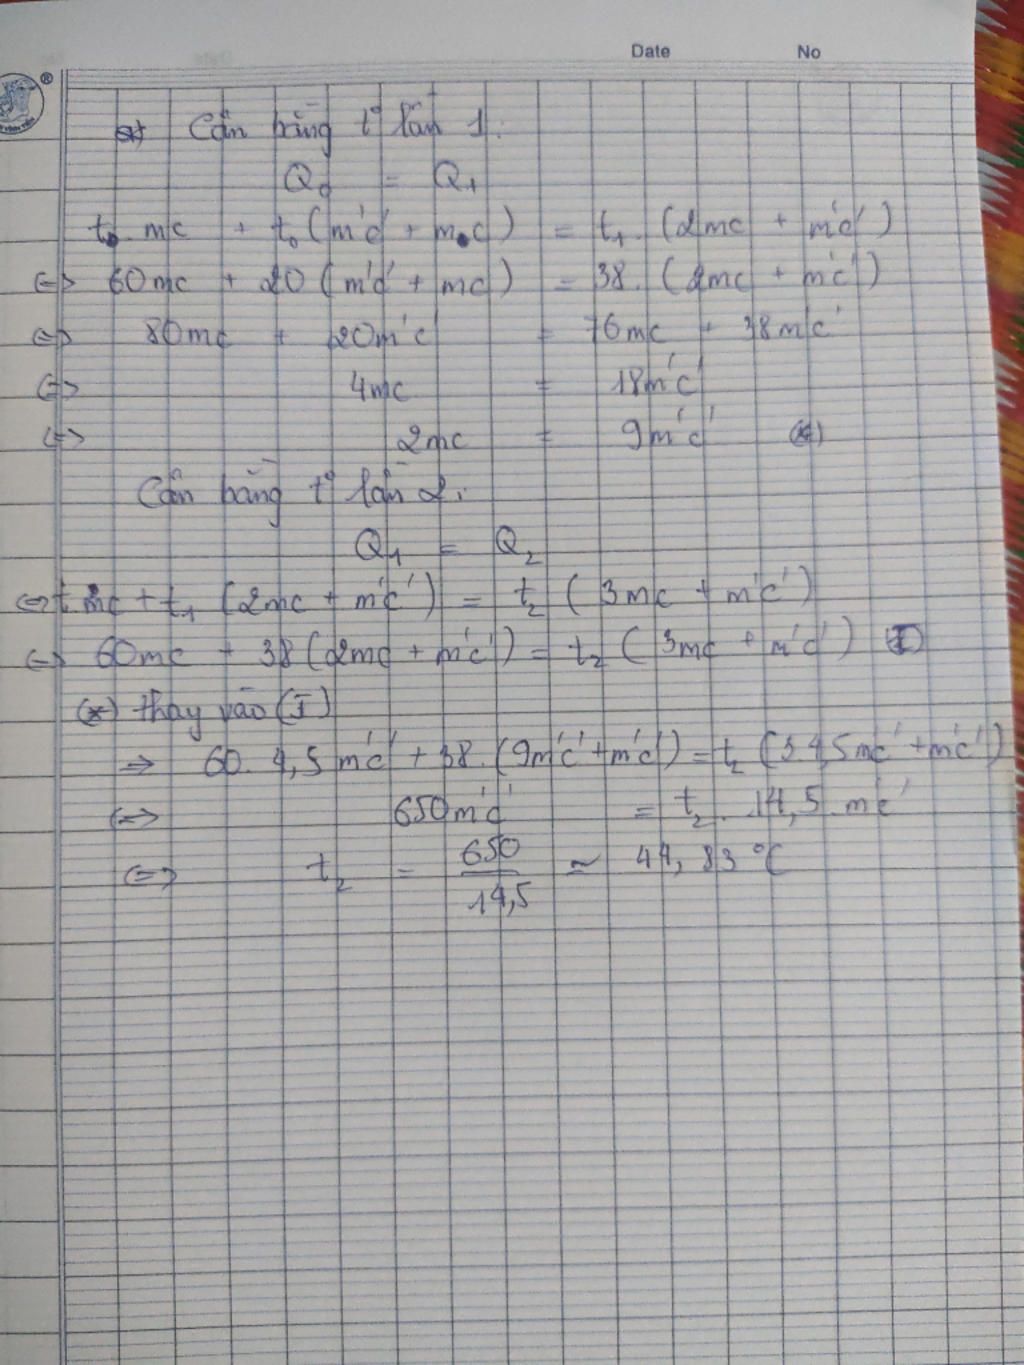 Date No
®
Cân bằng t° lần 1:
Q₀ = Q₁
t. mc + t₀ (m'c' + m.c) = t₁. (2mc + m'c')
<=> 60mc + 20 (m'c' + mc) = 38. (2mc + m'c')
<=> 80mc + 20m'c' = 76mc + 38m'c'
<=> 4mc = 18m'c'
<=> 2mc = 9m'c' (*)
Cân bằng t° lần 2:
Q₁ = Q₂
<=> t mc + t₁ (2mc + m'c') = t₂ (3mc + m'c')
<=> 60mc + 38 (2mc + m'c') = t₂ (3mc + m'c') (I)
(*) thay vào (I)
=> 60. 4,5 m'c' + 38. (9m'c' + m'c') = t₂ (3.4,5m'c' + m'c')
<=> 650m'c' = t₂. 14,5 m'c'
<=> t₂ = 650/14,5 ≃ 44,83 °C